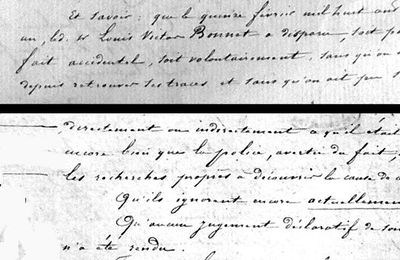 Et savoir : que le quinze février mil huit cent
un, led. Sr Louis Victor Bonnet a disparu, soit pa
fait accidentel, soit volontairement, sans qu'on a
depuis retrouver ses traces et sans qu'on ait pu s
directement ou indirectement ce qu'il était
encore bien que la police, avertie du fait,
les recherches propres à découvrir la cause de c
Qu'ils ignorent encore actuellemen
Qu'aucun jugement déclaratif de son
n'a été rendu.